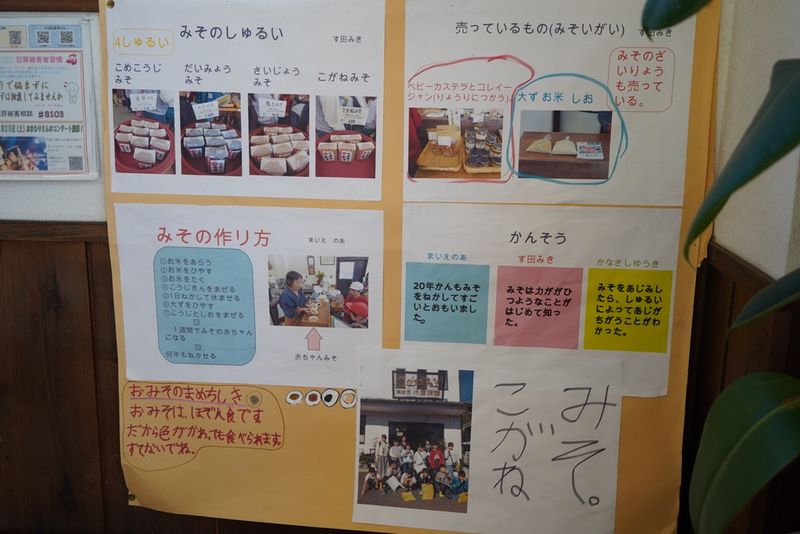 犯罪被害者習慣
#8103
みそのしゅるい
す田みき
4しゅるい
こめこうじ
みそ
だいみょう
みそ
さいじょう
みそ
こがねみそ
売っているもの(みそいがい)
す田みき
みそのざ
いりょう
も売って
いる。
ベビーカステラとコレイー
ジャン(りょうりにつかう)、
大ず お米 しお
みその作り方
まいえ のあ
①お米をあらう
②お米をひやす
③お米をたく
④こうじきんをまぜる
⑤1日ねかして休ませる
⑥大ずをひやす
⑦こうじとしおをまぜる
1週間でみその赤ちゃん
になる
何年もねかせる
赤ちゃんみそ
かんそう
まいえのあ
20年かんもみそ
をねかしてすご
いとおもいました。
す田みき
みそは力ががひ
つようなことが
はじめて知っ
た。
かなざしゆうき
みそをあじみし
たら、しゅるい
によってあじが
ちがうことがわ
かった。
おみそのまめちしき
おみそは、ほぞん食です
だから色がかわっても食べられます
すてないでね。
みそ。
こがね